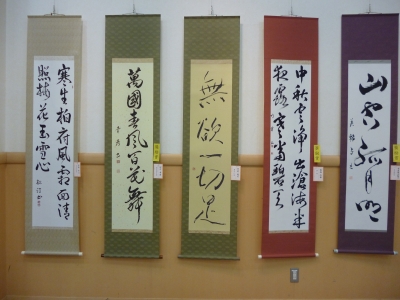 山空孤月明
中秋雲浄出滄海半
夜露寒當碧天
無欲一切足
萬國春風百花舞
寒生柏府風霜面清
照梅花玉雪心